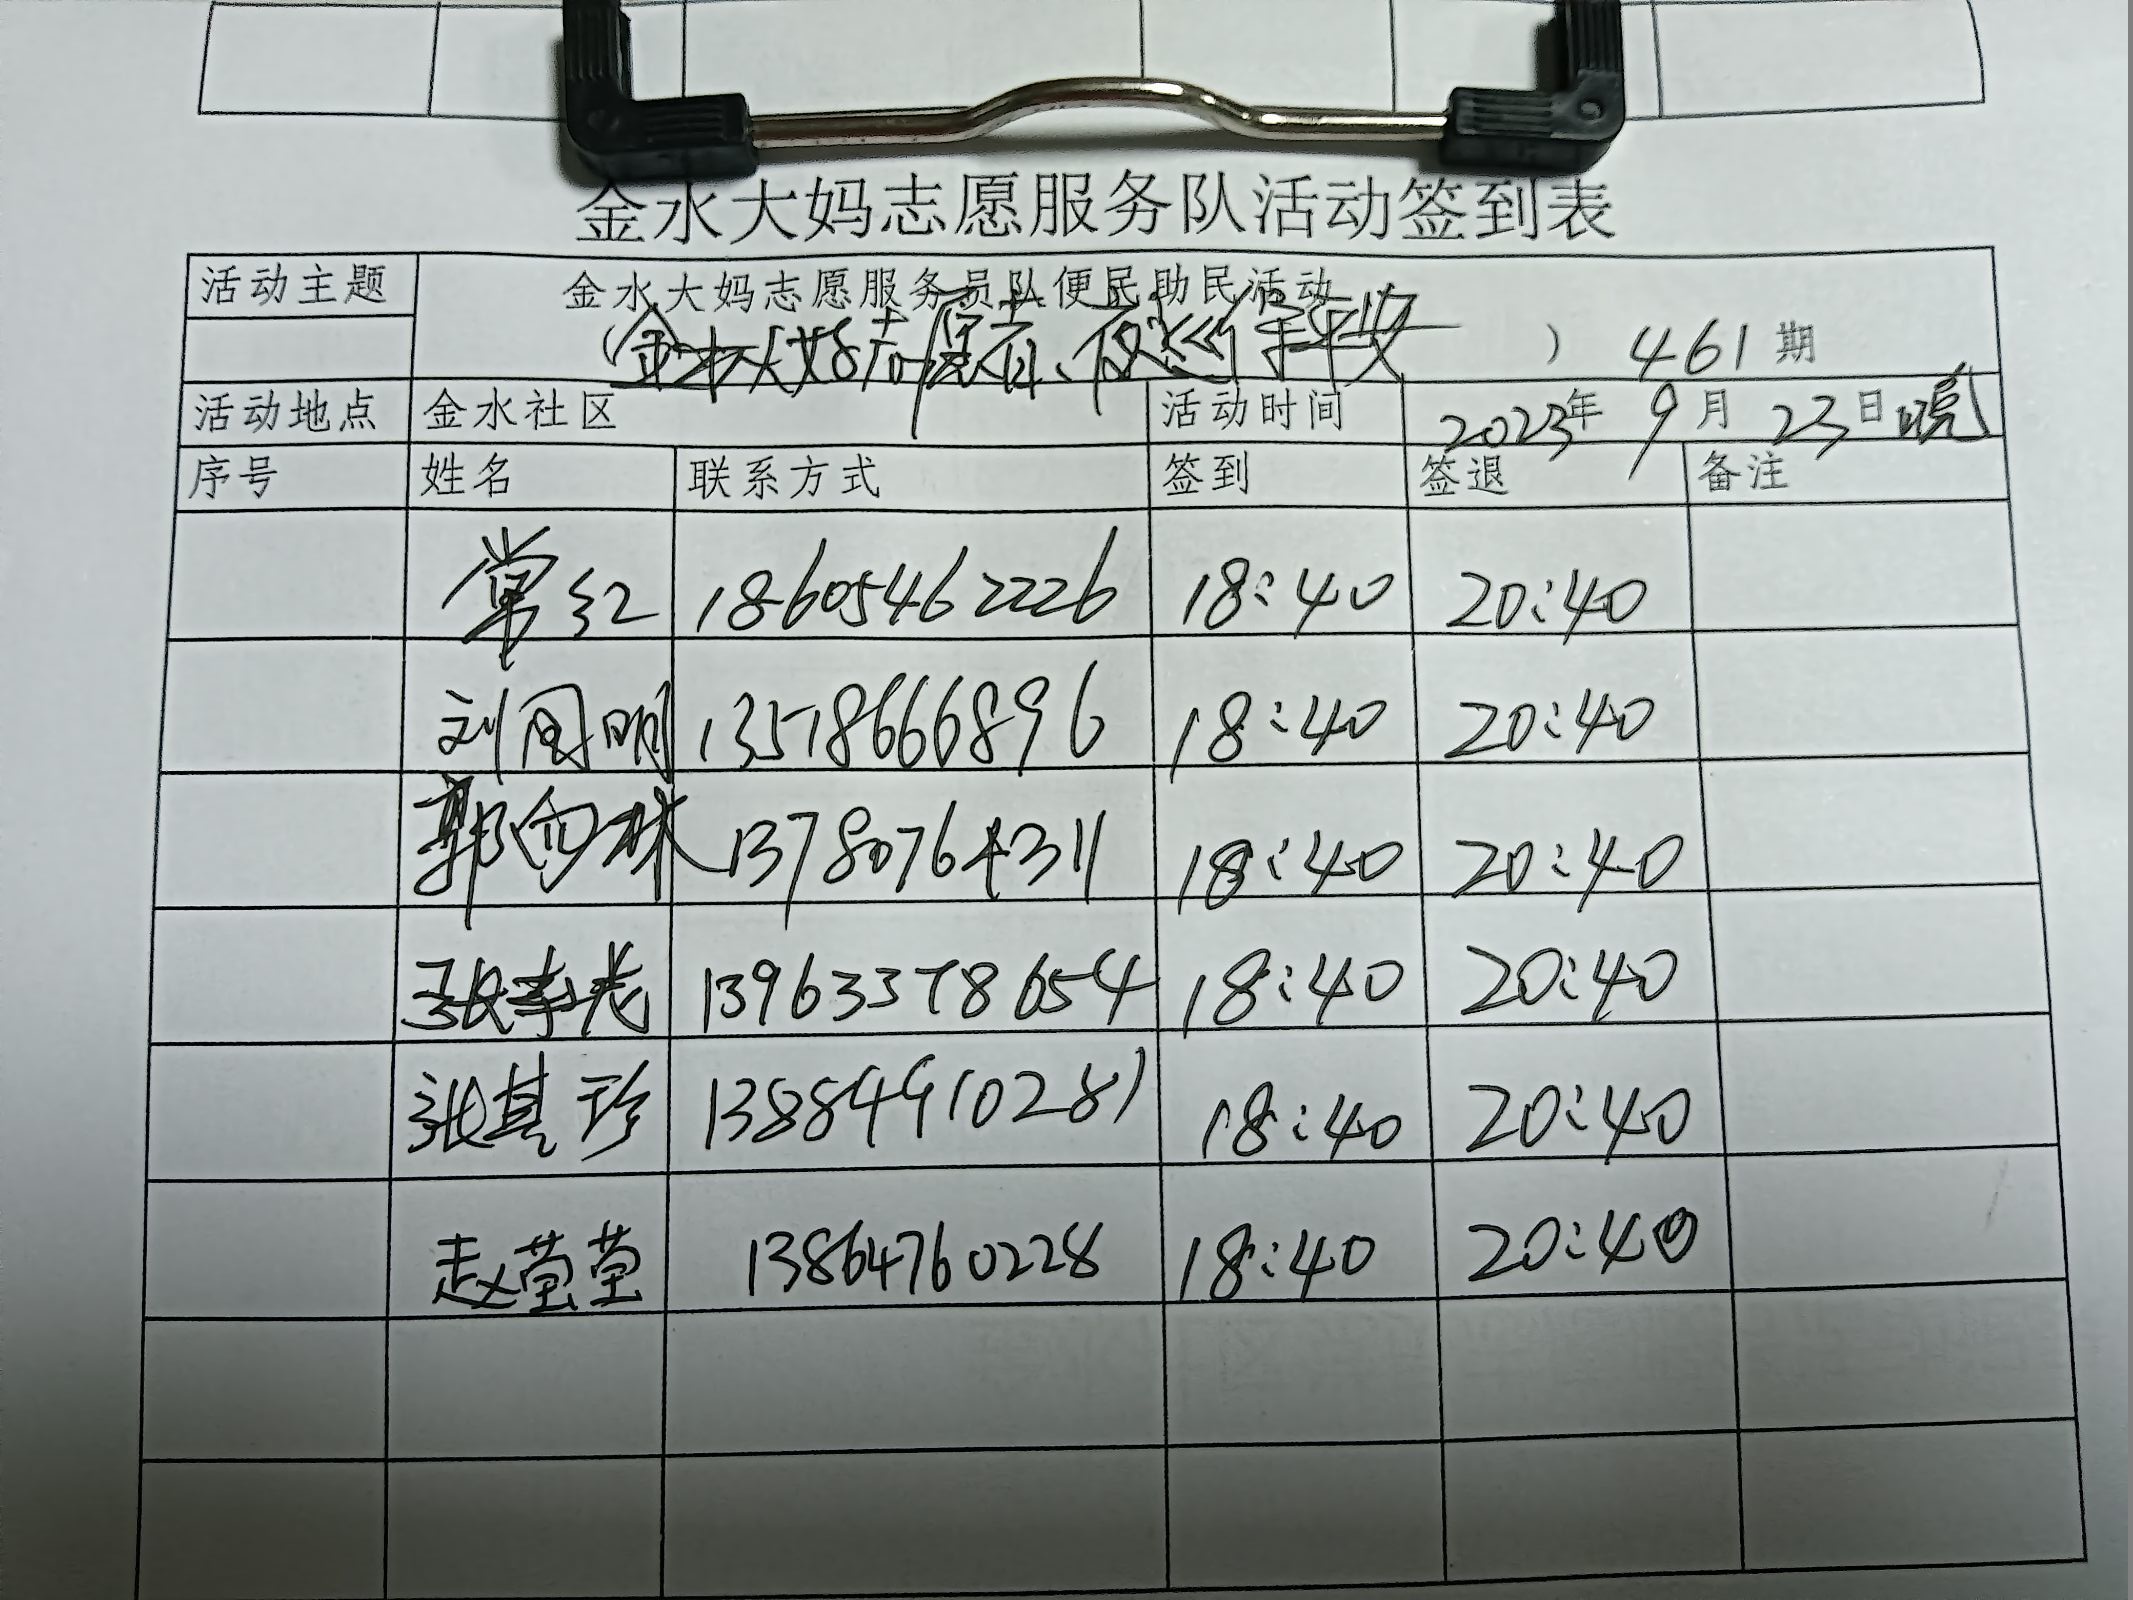 金水大妈志愿服务队活动签到表
活动主题 金水大妈志愿服务员队便民助民活动
（金水大妈志愿者、夜巡保平安 ） 461期
活动地点 金水社区 活动时间 2023年9月23日晚
序号 姓名 联系方式 签到 签退 备注
常红 18605462226 18:40 20:40
刘同明 13578666896 18:40 20:40
郭向林 13780764311 18:40 20:40
张孝光 13963378654 18:40 20:40
张其珍 13884910281 18:40 20:40
赵莹莹 13864760228 18:40 20:40